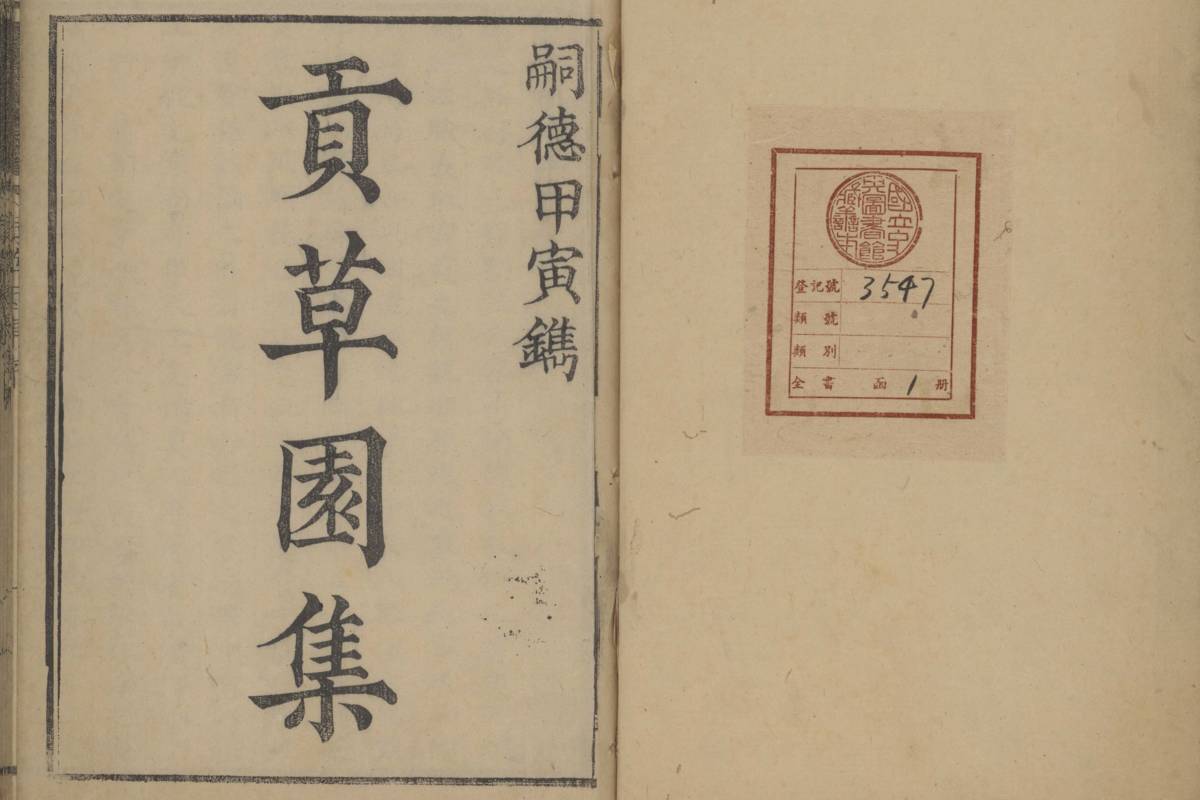 國立
圖書館
登記號 3547
類號
類別
全書 函 1 册
嗣德甲寅鐫
貢草園集